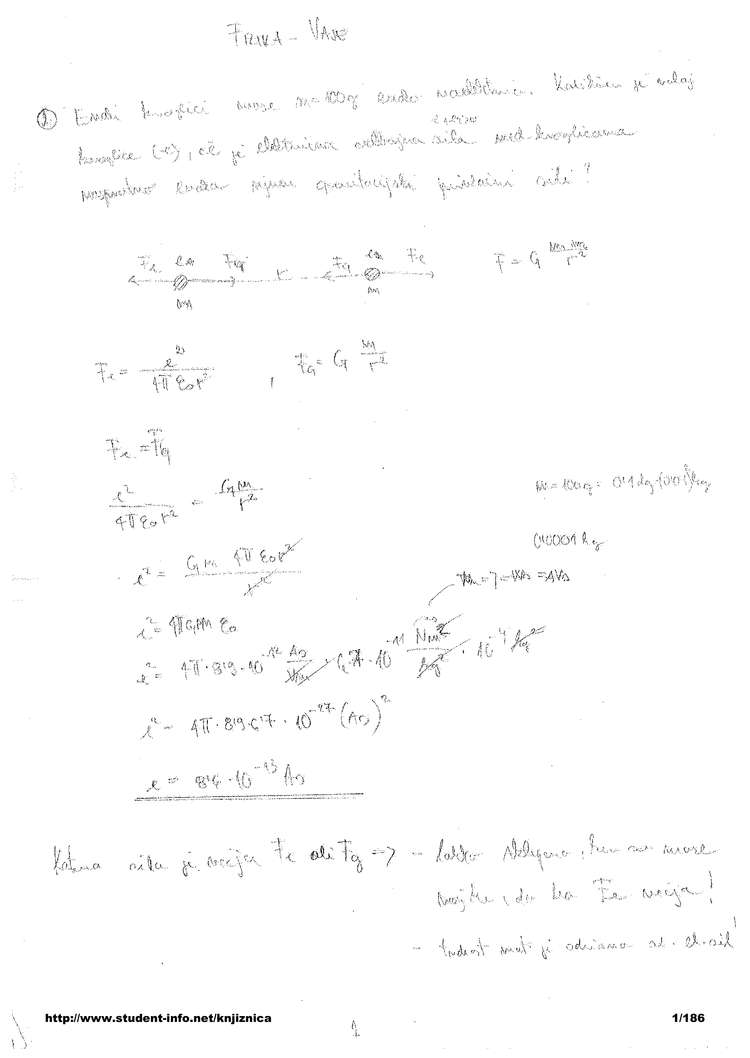 FIZIKA - VAJE
① Enaki kroglici mase m=100g enako naelektrimo. Kolikšen je naboj
kroglice (e), če je električna odbojna sila med kroglicama
nasprotno enaka njuni gravitacijski privlačni sili?
Fe e₁ Fg r Fg e₂ Fe F = G m₁ m₂ / r²
m₁ m₂
Fe = e² / 4πε₀r² , Fg = G m / r²
Fe = Fg
e² / 4πε₀r² = G m / r²
m = 100g = 0,1 kg
e² = G m 4πε₀r² / r²
Nm = J = VAs = AVs
e² = 4πGm ε₀
e² = 4π · 8,9 · 10⁻¹² As/Vm · 6,7 · 10⁻¹¹ Nm²/kg² · 10⁻⁴ kg²
e² = 4π · 8,9 · 6,7 · 10⁻²⁷ (As)²
e = 8,6 · 10⁻¹³ As
Katera sila je večja Fe ali Fg => - lahko sklepamo, ker so mase
majhne, da bo Fe večja!
- trdost mat. je odvisna od el. sil!
http://www.student-info.net/knjiznica
1/186
1